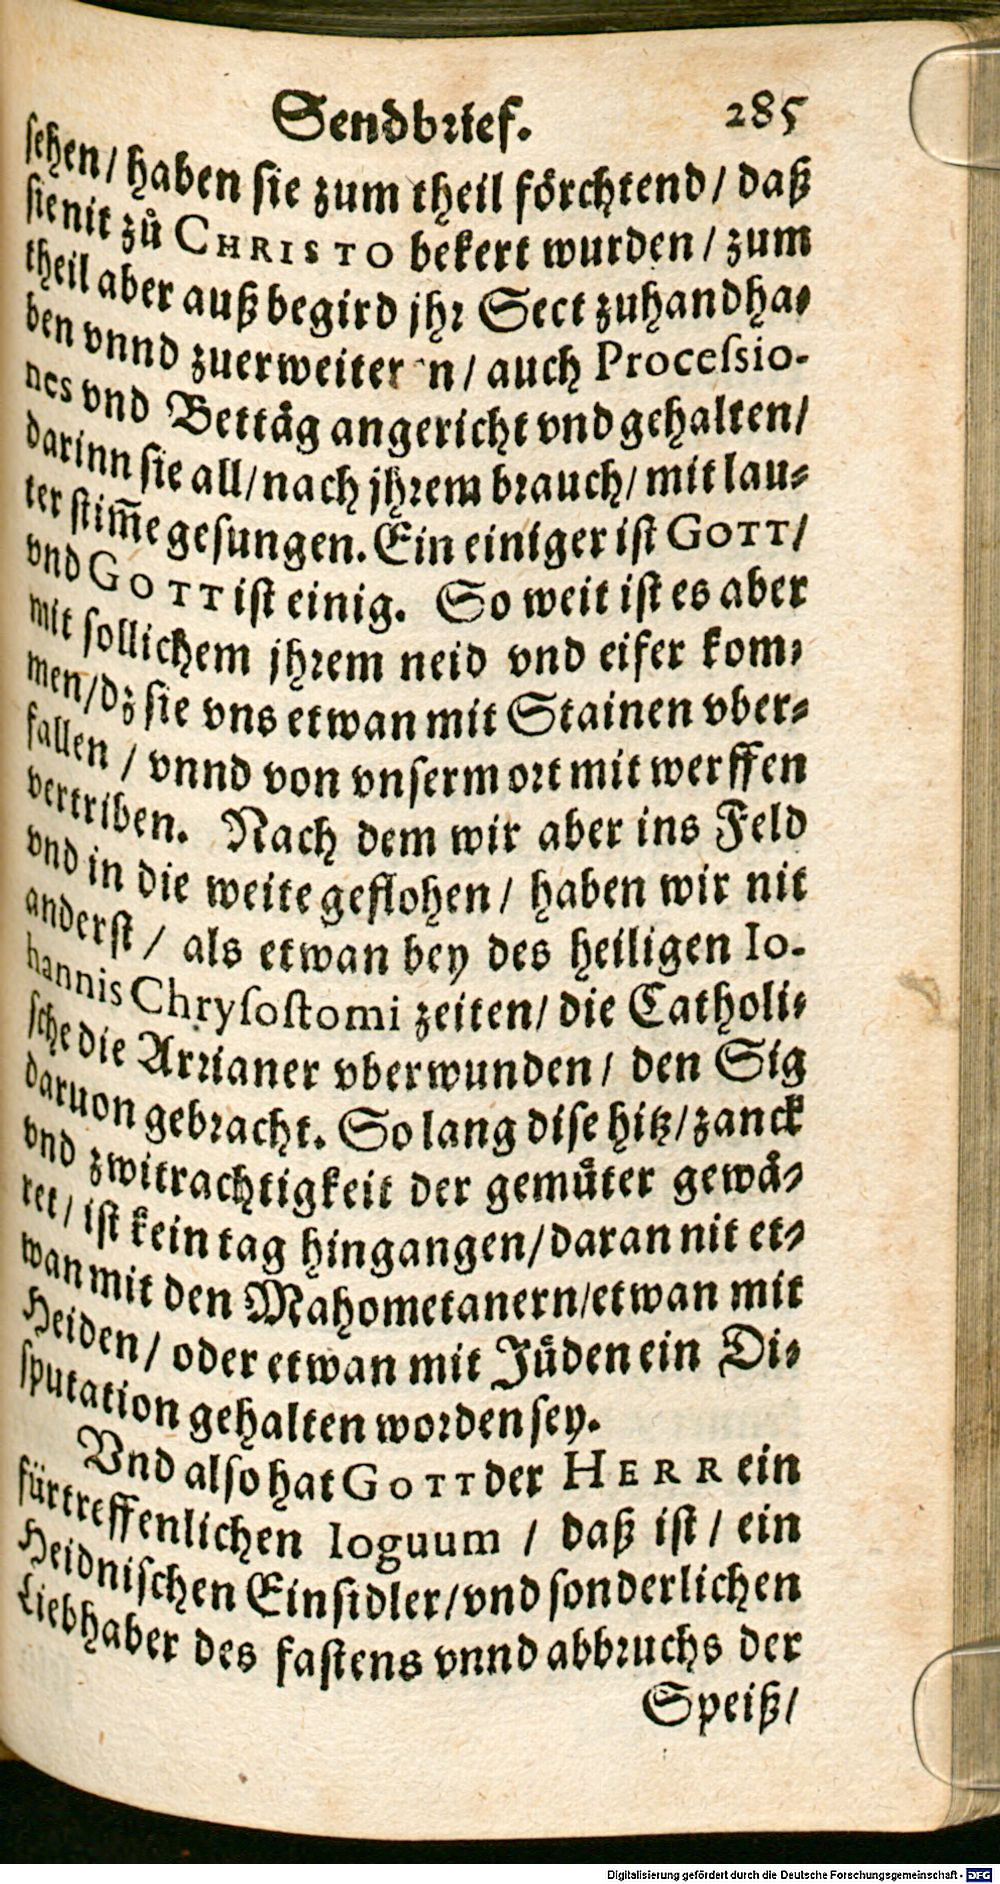 Sendbrief. 285
sehen/ haben sie zum theil förchtend/ daß
sie nit zů CHRISTO bekert wurden/ zum
theil aber auß begird jhr Sect zuhandha⸗
ben vnnd zuerweiter n/ auch Processio-
nes vnd Bettåg angericht vnd gehalten/
darinn sie all/ nach jhrem brauch/ mit lau⸗
ter stim̃e gesungen. Ein einiger ist GOTT/
vnd GOTT ist einig. So weit ist es aber
mit sollichem jhrem neid vnd eifer kom⸗
men/ dz sie vns etwan mit Stainen vber⸗
fallen / vnnd von vnserm ort mit werffen
vertriben. Nach dem wir aber ins Feld
vnd in die weite geflohen/ haben wir nit
anderst / als etwan bey des heiligen Io-
hannis Chrysostomi zeiten/ die Catholi⸗
sche die Arrianer vberwunden/ den Sig
daruon gebracht. So lang dise hitz/ zanck
vnd zwitrachtigkeit der gemůter gewå⸗
ret/ ist kein tag hingangen/ daran nit et⸗
wan mit den Mahometanern/ etwan mit
Heiden/ oder etwan mit Jůden ein Di⸗
sputation gehalten worden sey.
Vnd also hat GOTT der HERR ein
fürtreffenlichen Ioguum / daß ist/ ein
Heidnischen Einsidler/ vnd sonderlichen
Liebhaber des fastens vnnd abbruchs der
Speiß/
Digitalisierung gefördert durch die Deutsche Forschungsgemeinschaft - DFG